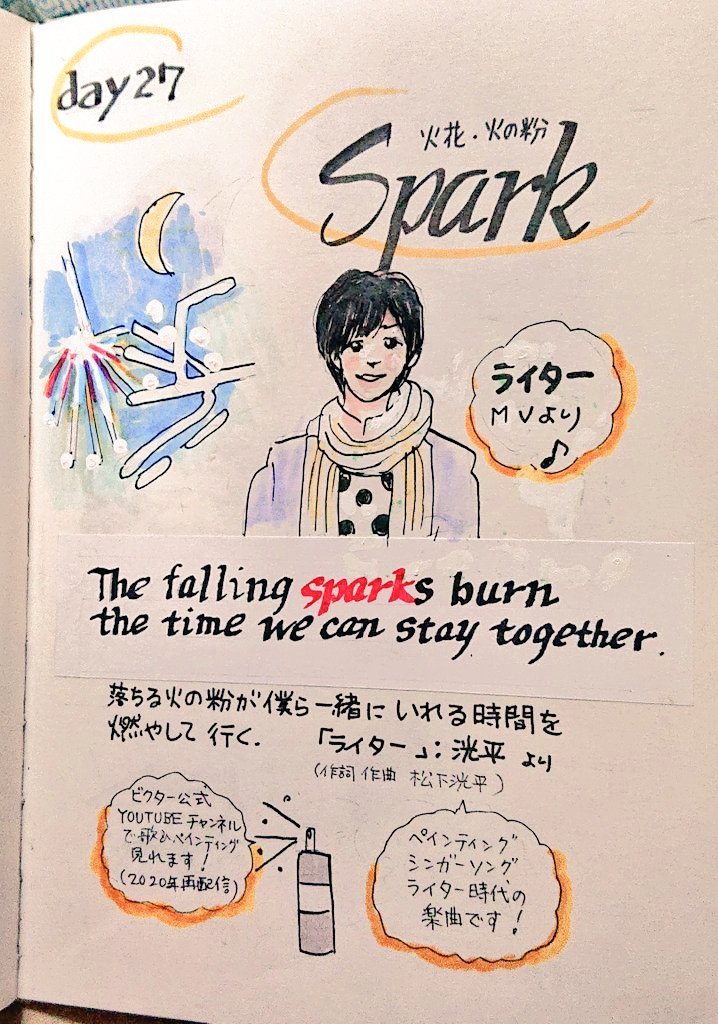 day 27
火花・火の粉
Spark
ライター
MVより
The falling sparks burn
the time we can stay together.
落ちる火の粉が僕ら一緒にいれる時間を
燃やして行く. 「ライター」:洸平 より
(作詞 作曲 松下洸平)
ビクター公式
YOUTUBEチャンネル
で歌&ペインティング
見れます!
(2020年再配信)
ペインティング
シンガーソング
ライター時代の
楽曲です!